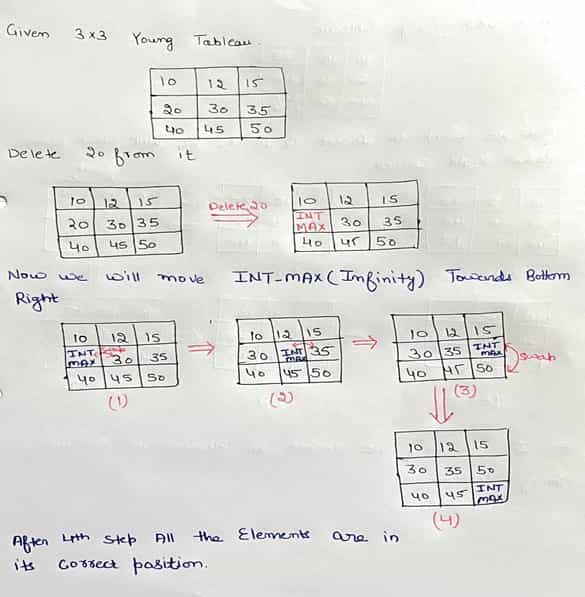 Given 3x3 Young Tableau.
10 12 15
20 30 35
40 45 50
Delete 20 from it
10 12 15
20 30 35
40 45 50
Delete 20
10 12 15
INT MAX 30 35
40 45 50
Now we will move INT-MAX (Infinity) Towards Bottom
Right
10 12 15
INT MAX 30 35
40 45 50
(1)
10 12 15
30 INT MAX 35
40 45 50
(2)
10 12 15
30 35 INT MAX
40 45 50
swap
(3)
10 12 15
30 35 50
40 45 INT MAX
(4)
After 4th step All the Elements are in
its correct position.